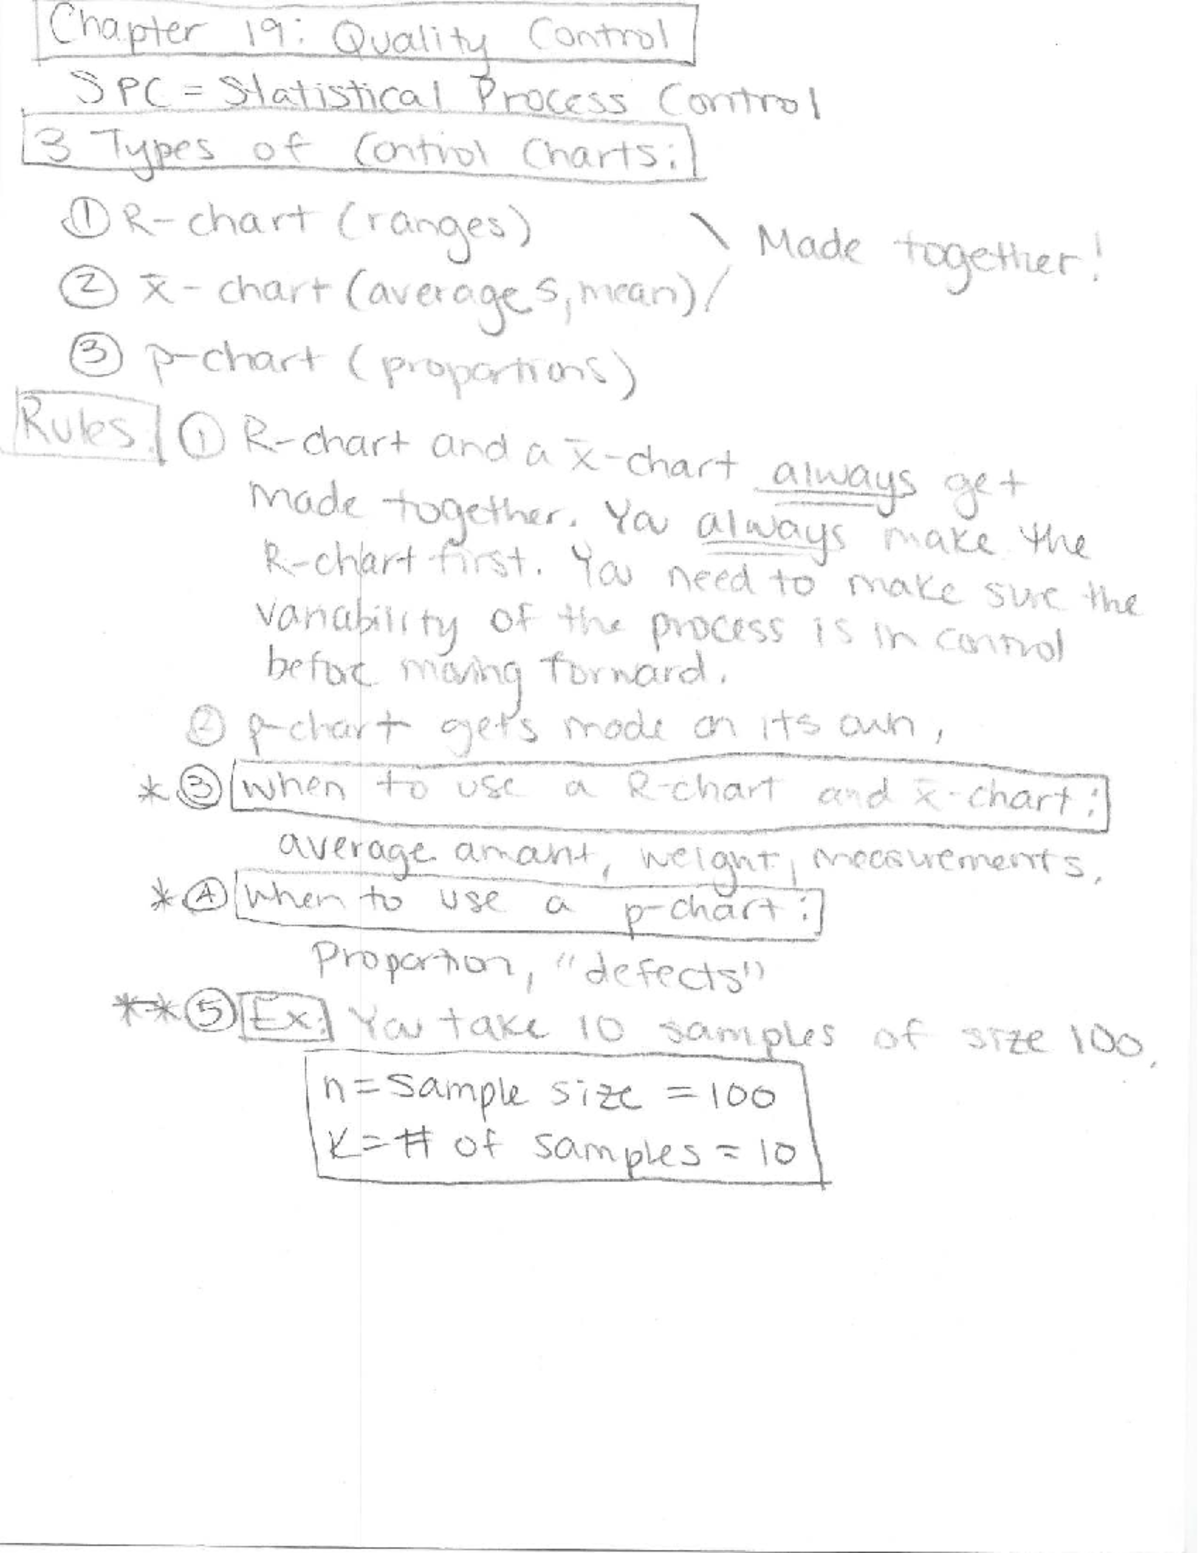 Chapter 19: Quality Control
SPC = Statistical Process Control
3 Types of Control Charts:
① R-chart (ranges) \ Made together!
② x̄-chart (averages, mean) /
③ p-chart (proportions)
Rules: ① R-chart and a x̄-chart always get
made together. You always make the
R-chart first. You need to make sure the
variability of the process is in control
before moving forward.
② p-chart gets made on its own,
* ③ when to use a R-chart and x̄-chart:
average amount, weight, measurements.
* ④ when to use a p-chart:
Proportion, "defects"
** ⑤ Ex: You take 10 samples of size 100.
n = sample size = 100
K = # of samples = 10